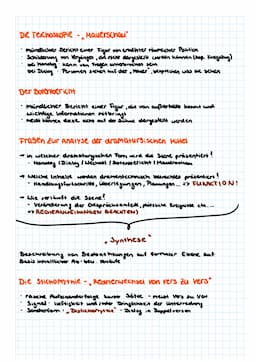 Die Teichoskopie - „Mauerschau"
- mündlicher Bericht einer Figur von erhöhter räumlicher Position
- Schilderung von Vorgängen, die nicht dargestellt werden können (bsp. Kriegsflug)
- bei Monolog: kann von Fragen unterbrochen sein
- bei Dialog: Personen stehen auf der „Mauer", besprechen was sie sehen
Der Botenbericht
- mündlicher Bericht einer Figur, die von außerhalb kommt und
wichtige Informationen mitbringt
- beide können diese nicht auf der Bühne dargestellt werden
Fragen zur Analyse der dramaturgischen Mittel
→ In welcher dramaturgischen Form wird die Szene präsentiert?
- Monolog / Dialog / Wechsel / Botenbericht / Mauerschau
→ Welche Inhalte werden dramentechnisch besonders präsentiert?
- Handlungsfortschritte, Überlegungen, Planungen ... => FUNKTION!
→ Wie verläuft die Szene?
- Veränderung der Gesprächsanteile, plötzliche Ereignisse etc. ...
=> REGIEANWEISUNGEN BEACHTEN!
„Synthese"
Beschreibung von Beobachtungen auf formaler Ebene auf
Basis inhaltlicher
Die Stichomythie - „Rednerwechsel von Vers zu Vers"
- rasche Aufeinanderfolge kurzer Sätze - meist Vers zu Vers
- Signal: Heftigkeit und/oder Dringlichkeit der Unterredung
- Sonderform: „Distichomythie" - Dialog in Doppelversen